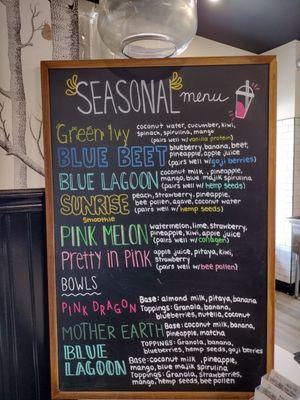 SEASONAL menu
Green Ivy coconut water, cucumber, kiwi,
spinach, spirulina, mango
(pairs well w/ vanilla protein)
BLUE BEET blueberry, banana, beet,
pineapple, apple juice
(pairs well w/ goji berries)
BLUE LAGOON coconut milk, pineapple,
mango, blue majik spirulina
(pairs well w/ hemp seeds)
SUNRISE Smoothie peach, strawberry, pineapple,
bee pollen, agave, coconut water
(pairs well w/ hemp seeds)
PINK MELON watermelon, lime, strawberry,
pineapple, kiwi, apple juice
(pairs well w/ collagen)
Pretty in Pink apple juice, pitaya, kiwi,
strawberry
(pairs well w/ bee pollen)
BOWLS
PINK DRAGON Base: almond milk, pitaya, banana
Toppings: Granola, banana,
blueberries, nutella, coconut
MOTHER EARTH Base: coconut milk, banana,
pineapple, matcha
TOPPINGS: Granola, banana,
blueberries, hemp seeds, goji berries
BLUE LAGOON Base: coconut milk, pineapple,
mango, blue majik spirulina
Toppings: Granola, strawberries,
mango, hemp seeds, bee pollen